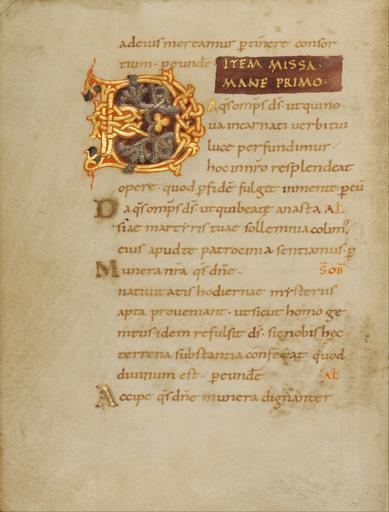 adeius mereamur ptinere consor
tium · peunde ITEM MISSA ·
MANE PRIMO ·
DA qs omps ds · ut qui no
ua incarnati uerbi tui
luce perfundimur ·
hoc in nro resplendeat
opere · quod p fide fulget in mente · p eu
Da qs omps ds · ut qui beate anastasiae AL
martyris tuae sollemnia colim
eius apud te patrocinia sentiamus · p
Munera nra qs dne · S OB
natiuitatis hodiernae mysteriis
apta proueniant · ut sicut homo ge
nitus idem refulsit ds · sic nobis hec
terrena substantia conferat quod
diuinum est · p eunde AL
Accipe qs dne munera dignanter